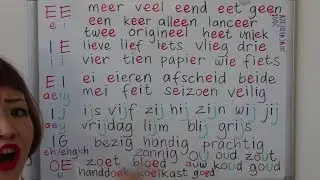 EE meer veel eend eet geen
e i een keer alleen lanceer
twee origineel heet uniek
IE lieve lief iets vlieg drie
i vier tien papier wie fiets
EI ei eieren afscheid beide
mei feit seizoen veilig
IJ ijs vijf zij hij zijn wij jij
vrijdag lijm blij grijs
IG bezig handig prachtig
zonnig OU oud zout
OE zoet bloed auw koud goud
handdoek koelkast goed